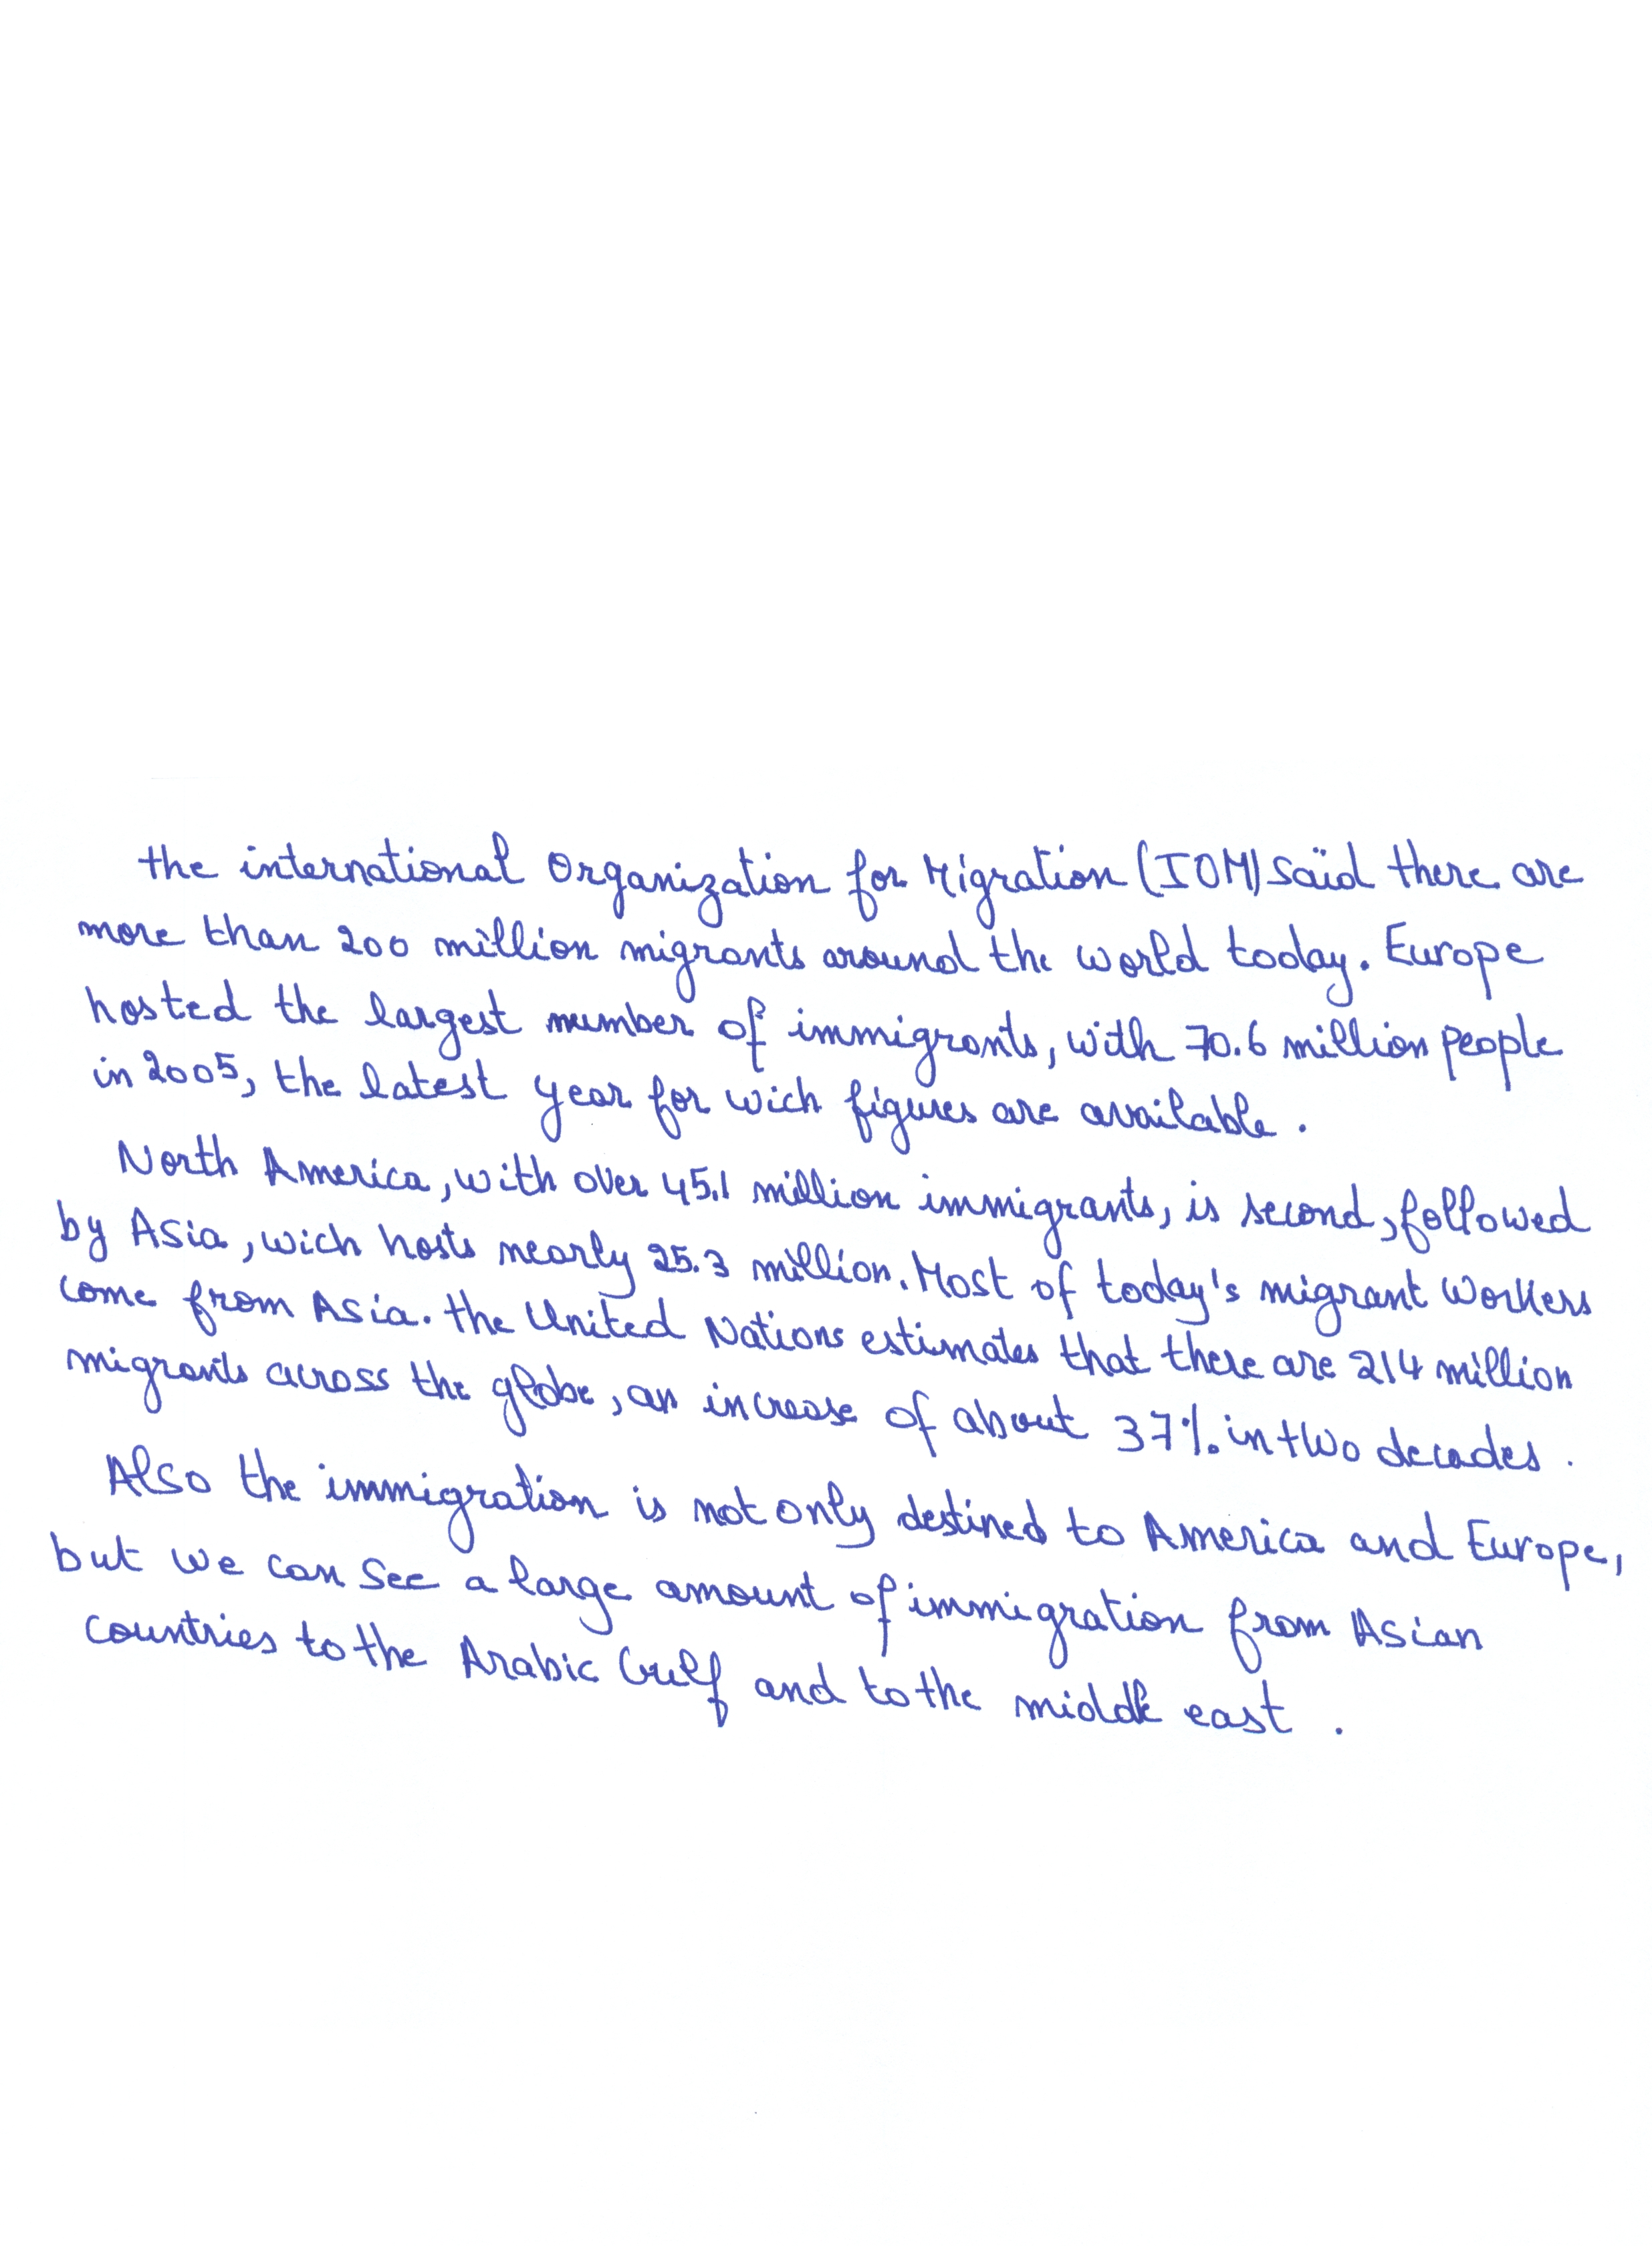 the international Organization for Migration (IOM) said there are
more than 200 million migrants around the world today. Europe
hosted the largest number of immigrants, with 70.6 million people
in 2005, the latest year for wich figures are available.
North America, with over 45.1 million immigrants, is second, followed
by Asia, wich hosts nearly 25.3 million. Most of today's migrant workers
come from Asia. the United Nations estimates that there are 214 million
migrants across the globe, an increase of about 37% in two decades.
Also the immigration is not only destined to America and Europe,
but we can see a large amount of immigration from Asian
countries to the Arabic Gulf and to the middle east.